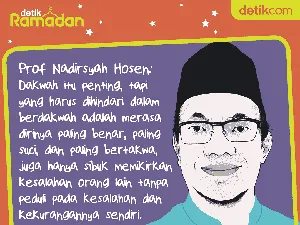 detik
Ramadan
detikcom
Prof Nadirsyah Hosen:
Dakwah itu penting, tapi
yang harus dihindari dalam
berdakwah adalah merasa
dirinya paling benar, paling
suci, dan paling bertakwa,
juga hanya sibuk memikirkan
kesalahan orang lain tanpa
peduli pada kesalahan dan
kekurangannya sendiri.